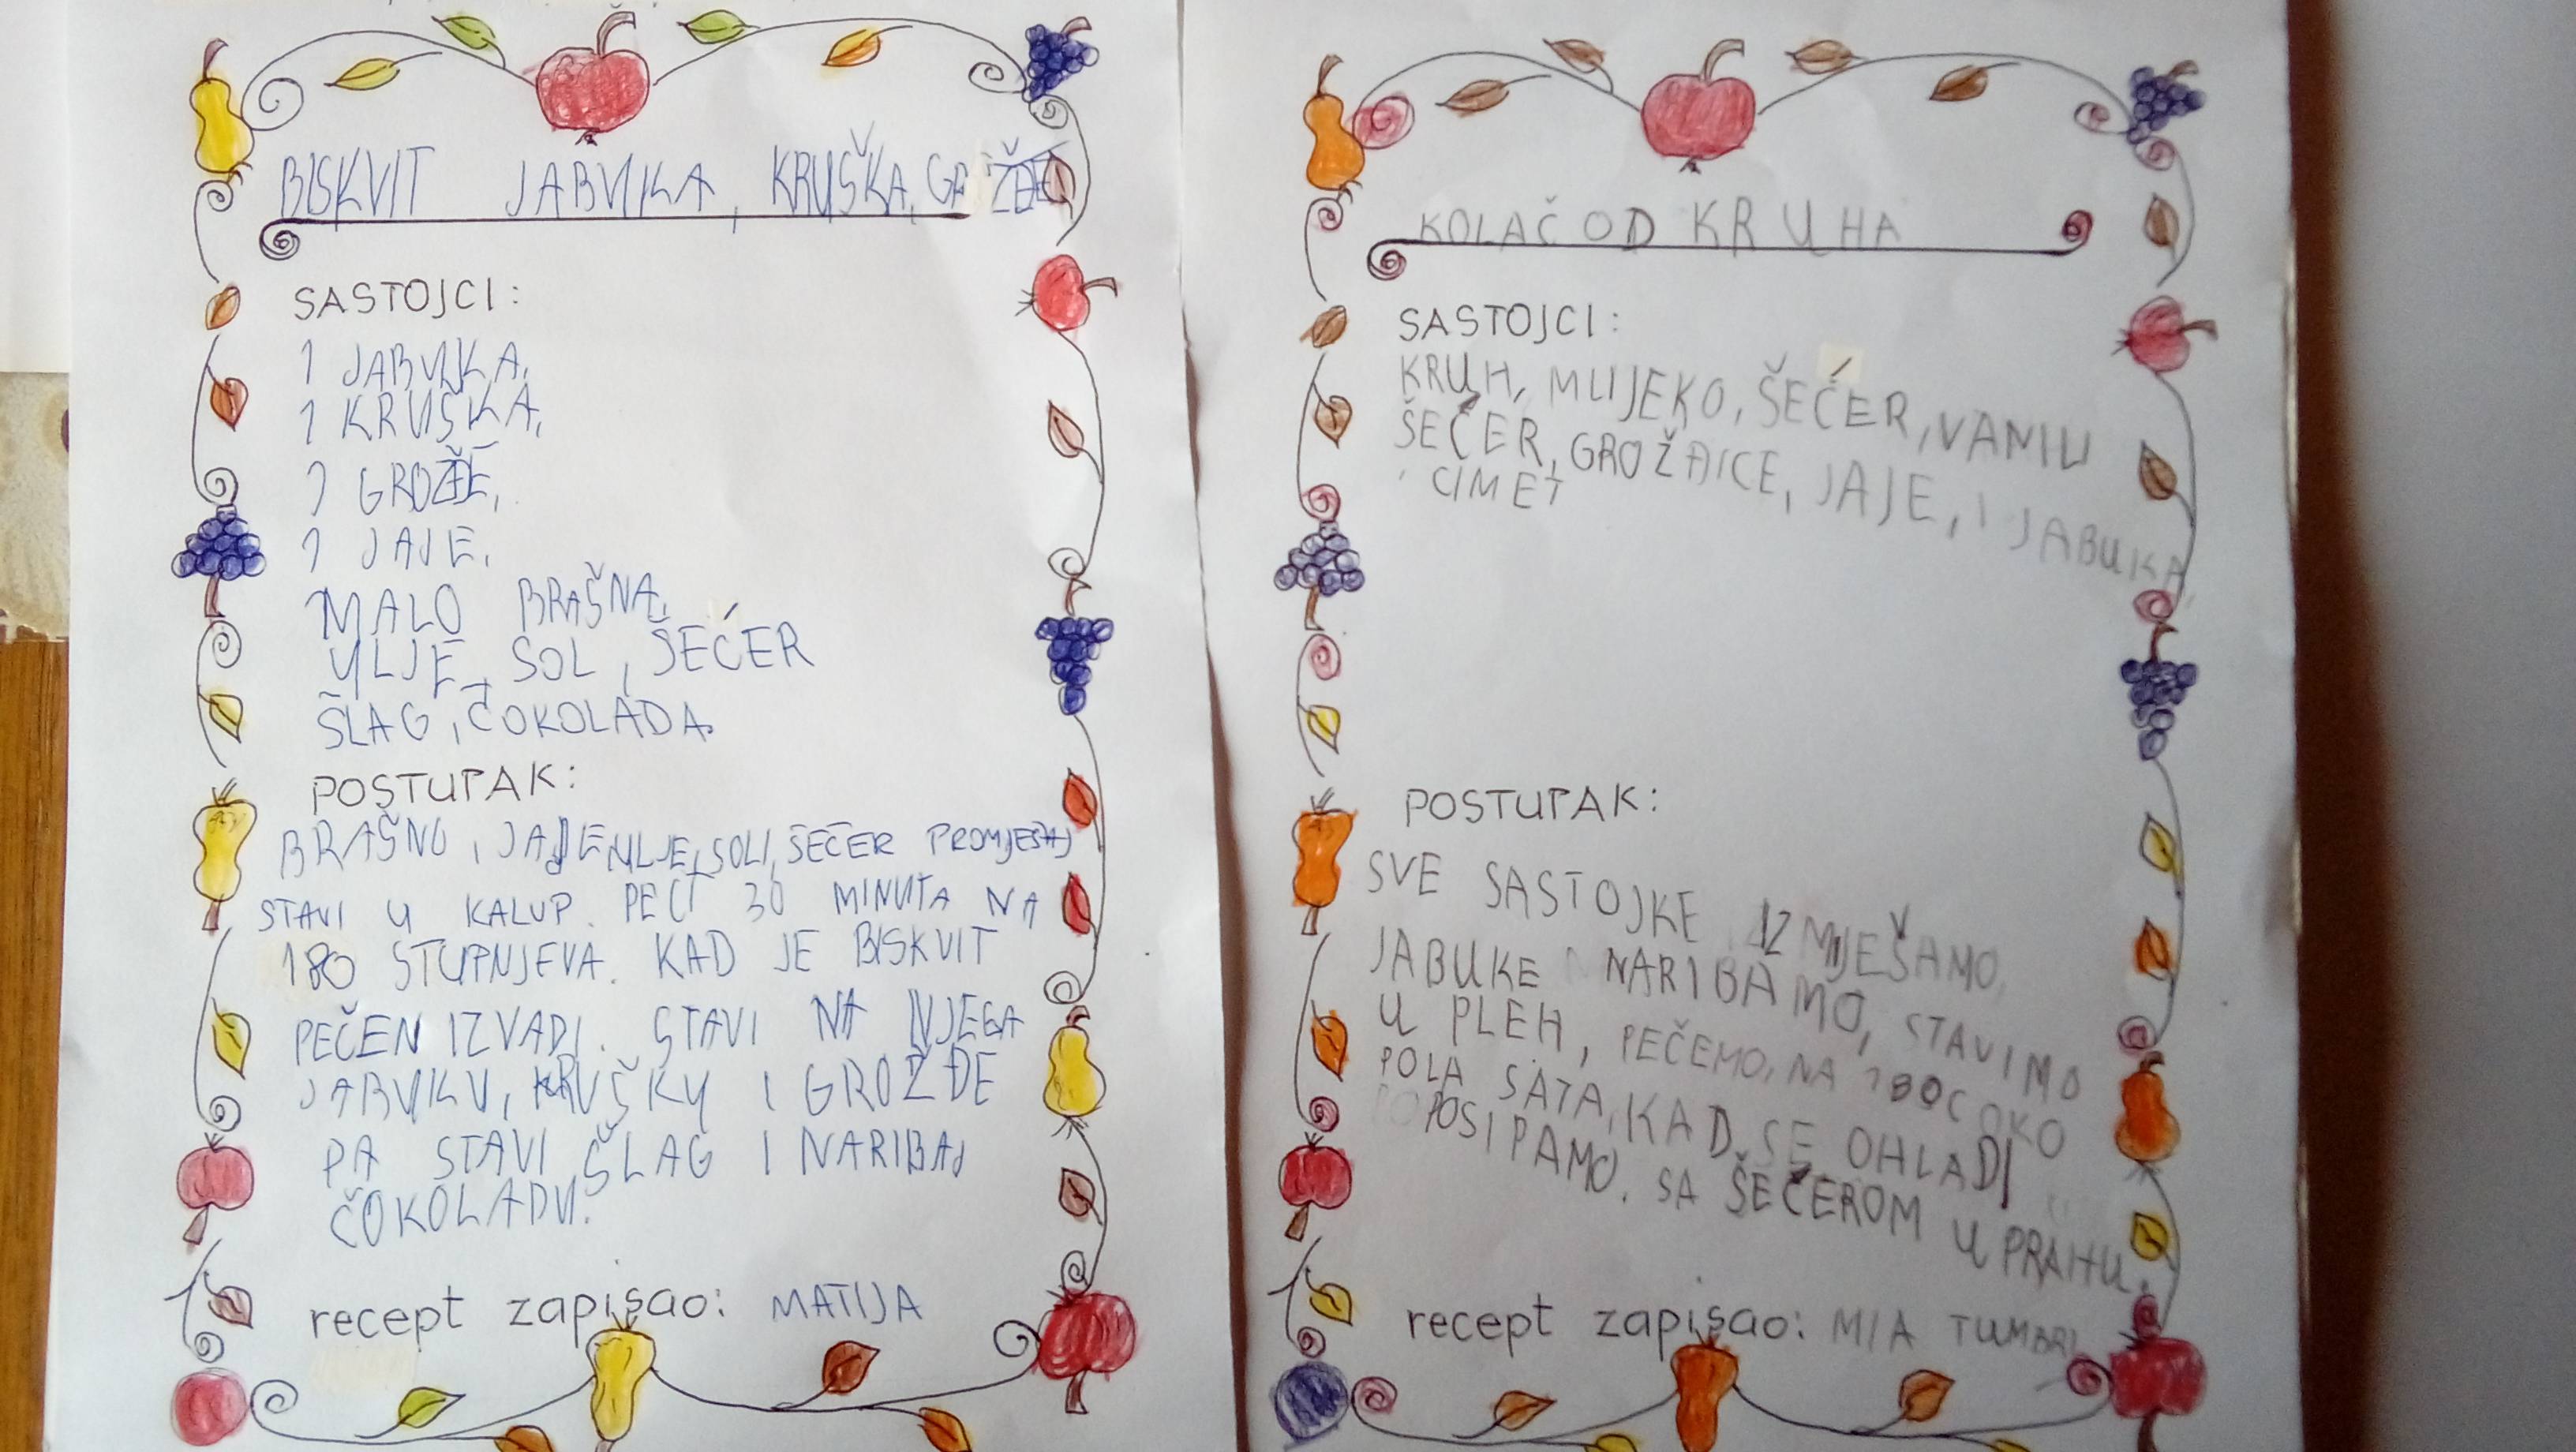 BISKVIT JABUKA, KRUŠKA, GROŽĐE
SASTOJCI:
1 JABUKA,
1 KRUŠKA,
1 GROŽĐE,
1 JAJE,
MALO BRAŠNA,
ULJE, SOL, ŠEĆER
ŠLAG, ČOKOLADA.
POSTUPAK:
BRAŠNO, JAJE, ULJE, SOLI, ŠEĆER PROMJEŠAJ
STAVI U KALUP. PEĆI 30 MINUTA NA
180 STUPNJEVA. KAD JE BISKVIT
PEČEN IZVADI. STAVI NA NJEGA
JABUKU, KRUŠKU I GROŽĐE
PA STAVI ŠLAG I NARIBAJ
ČOKOLADU.
recept zapisao: MATIJA
KOLAČ OD KRUHA
SASTOJCI:
KRUH, MLIJEKO, ŠEĆER, VANILI
ŠEĆER, GROŽĐICE, JAJE, I JABUKA
CIMET
POSTUPAK:
SVE SASTOJKE IZMJEŠAMO,
JABUKE NARIBAMO, STAVIMO
U PLEH, PEČEMO, NA 180C OKO
POLA SATA, KAD SE OHLADI
POSIPAMO. SA ŠEĆEROM U PRAHU.
recept zapisao: MIA